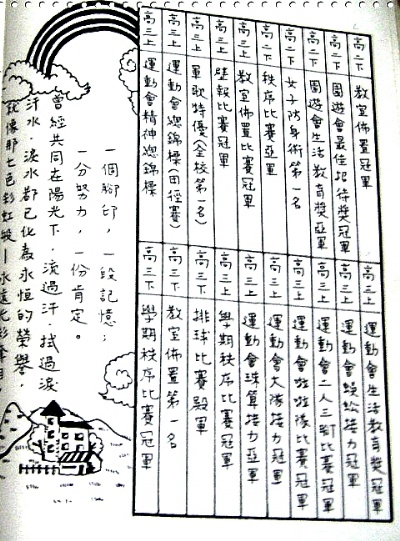 高二下 教室佈置冠軍
高二下 園遊會最佳招待獎冠軍
高二下 園遊會生活教育獎亞軍
高二下 女子防身術第一名
高二下 秩序比賽亞軍
高三上 教室佈置比賽冠軍
高三上 壁報比賽冠軍
高三上 軍歌特優(全校第一名)
高三上 運動會總錦標(田徑賽)
高三上 運動會精神總錦標
高三上 運動會生活教育獎冠軍
高三上 運動會蜈蚣接力冠軍
高三上 運動會二人三腳比賽冠軍
高三上 運動會啦啦隊比賽冠軍
高三上 運動會大隊接力冠軍
高三上 運動會珠算接力亞軍
高三上 學期秩序比賽冠軍
高三下 排球比賽殿軍
高三下 教室佈置第一名
高三下 學期秩序比賽冠軍
一個腳印，一段記憶；
一分努力，一份肯定。
曾經共同在陽光下，流過汗，拭過淚
汗水、淚水都已化為永恆的榮譽，
就像那七色彩虹般—永遠光彩